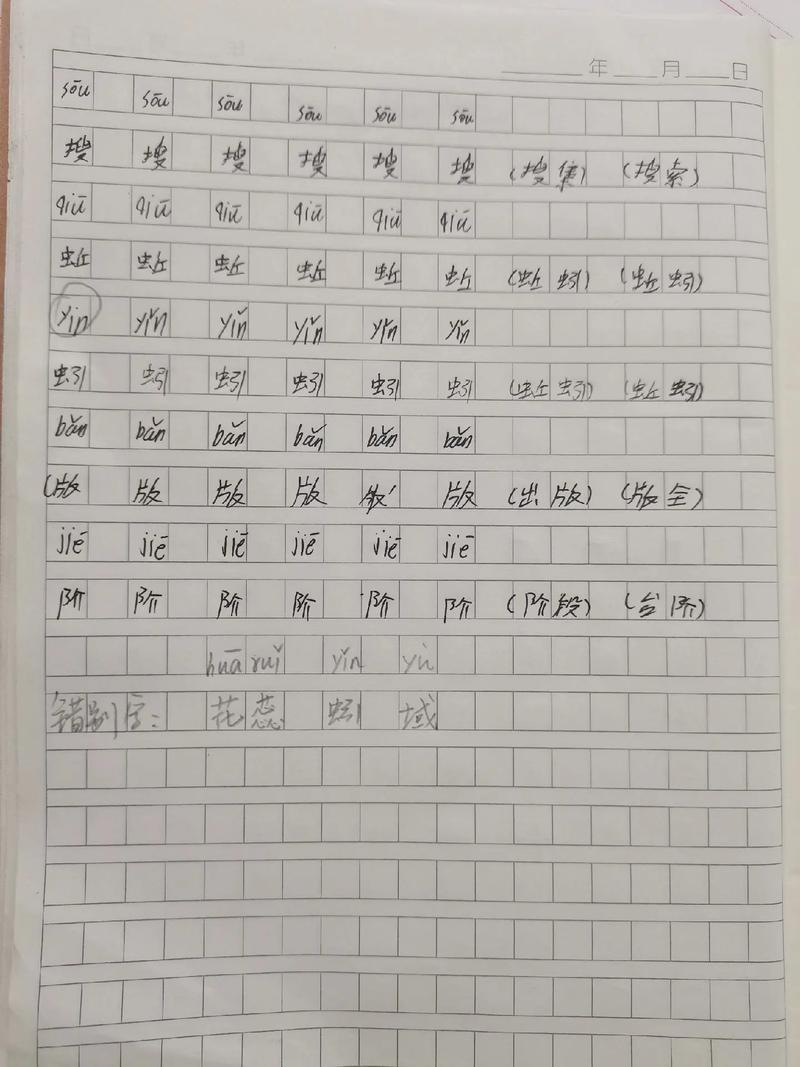 年 月 日
sōu sōu sōu sōu sōu sōu
搜 搜 搜 搜 搜 搜 (搜集) (搜索)
qiū qiū qiū qiū qiū qiū
蚯 蚯 蚯 蚯 蚯 蚯 (蚯蚓) (蚯蚓)
yin yǐn yǐn yǐn yǐn yǐn
蚓 蚓 蚓 蚓 蚓 蚓 (蚯蚓) (蚯蚓)
bǎn bǎn bǎn bǎn bǎn bǎn
(版 版 版 版 版 版 (出版) (版全)
jiē jiē jiē jiē jiē jiē
阶 阶 阶 阶 阶 阶 (阶段) (台阶)
huā ruǐ yǐn yù
错别字: 花蕊 蚓 域